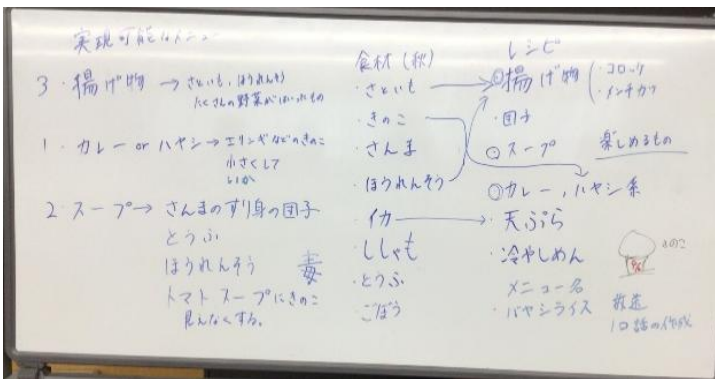 実現可能なメニュー
3・揚げ物 → さといも、ほうれんそう
たくさんの野菜がはいったもの
1・カレー or ハヤシ → エリンギなどのきのこ
小さくして
いか
2・スープ → さんまのすり身の団子
とうふ
ほうれんそう
毒
トマトスープにきのこ
見えなくする。
食材(秋)
・さといも
・きのこ
・さんま
・ほうれんそう
・イカ
・ししゃも
・とうふ
・ごぼう
レシピ
揚げ物
・コロッケ
・メンチカツ
・団子
スープ
楽しめるもの
カレー,ハヤシ系
・天ぷら
・冷やしめん
きのこ
メニュー名
・ハヤシライス
放送
10話の作成